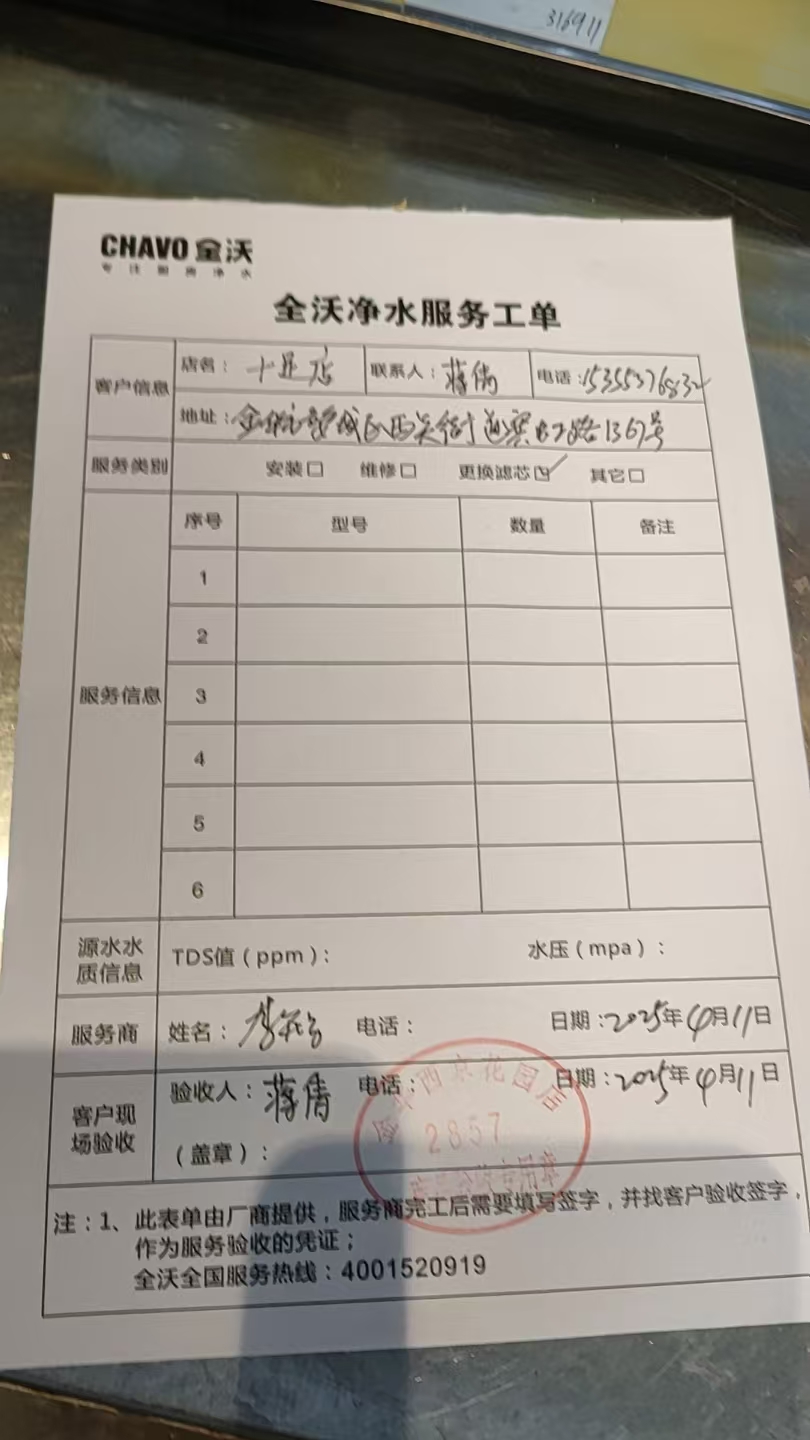 316911
CHAVO 全沃
专注厨房净水
全沃净水服务工单
客户信息
店名： 店 联系人：蒋倩 电话：15355376832
地址： 1367号
服务类别 安装□ 维修□ 更换滤芯☑ 其它□
服务信息
序号 型号 数量 备注
1
2
3
4
5
6
源水水质信息
TDS值（ppm）： 水压（mpa）：
服务商 姓名：李 电话： 日期：2025年4月11日
客户现场验收
验收人：蒋倩 电话： 日期：2025年4月11日
（盖章）：
西京花园店
2857
专用章
注：1、此表单由厂商提供，服务商完工后需要填写签字，并找客户验收签字，
作为服务验收的凭证；
全沃全国服务热线：4001520919